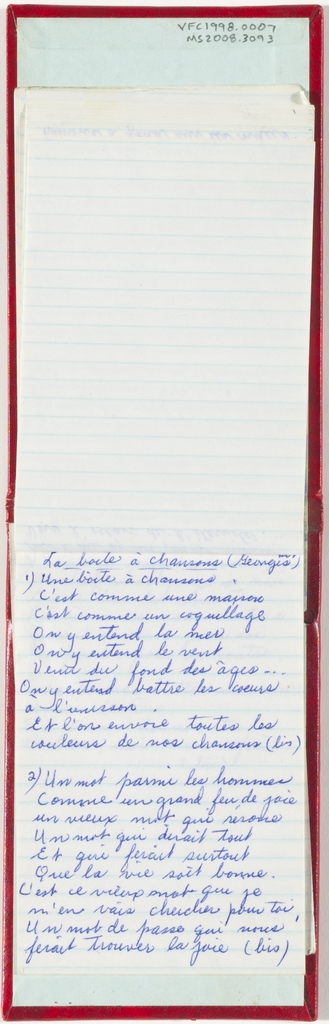 VFC1998.0007
MS2008.3093
La boîte à chansons (Georges
1) Une boîte à chansons.
C'est comme une maison
C'est comme un coquillage
On y entend la mer
On y entend le vent
Venu du fond des âges...
On y entend battre les coeurs
à l'unisson.
Et l'on envoie toutes les
couleurs de nos chansons (bis)
2) Un mot parmi les hommes
Comme un grand feu de joie
un vieux mot qui resone
Un mot qui dirait tout
Et qui ferait surtout
Que la vie soit bonne.
C'est ce vieux mot que je
m'en vais chercher pour toi,
Un mot de passe qui nous
ferait trouver la joie (bis)